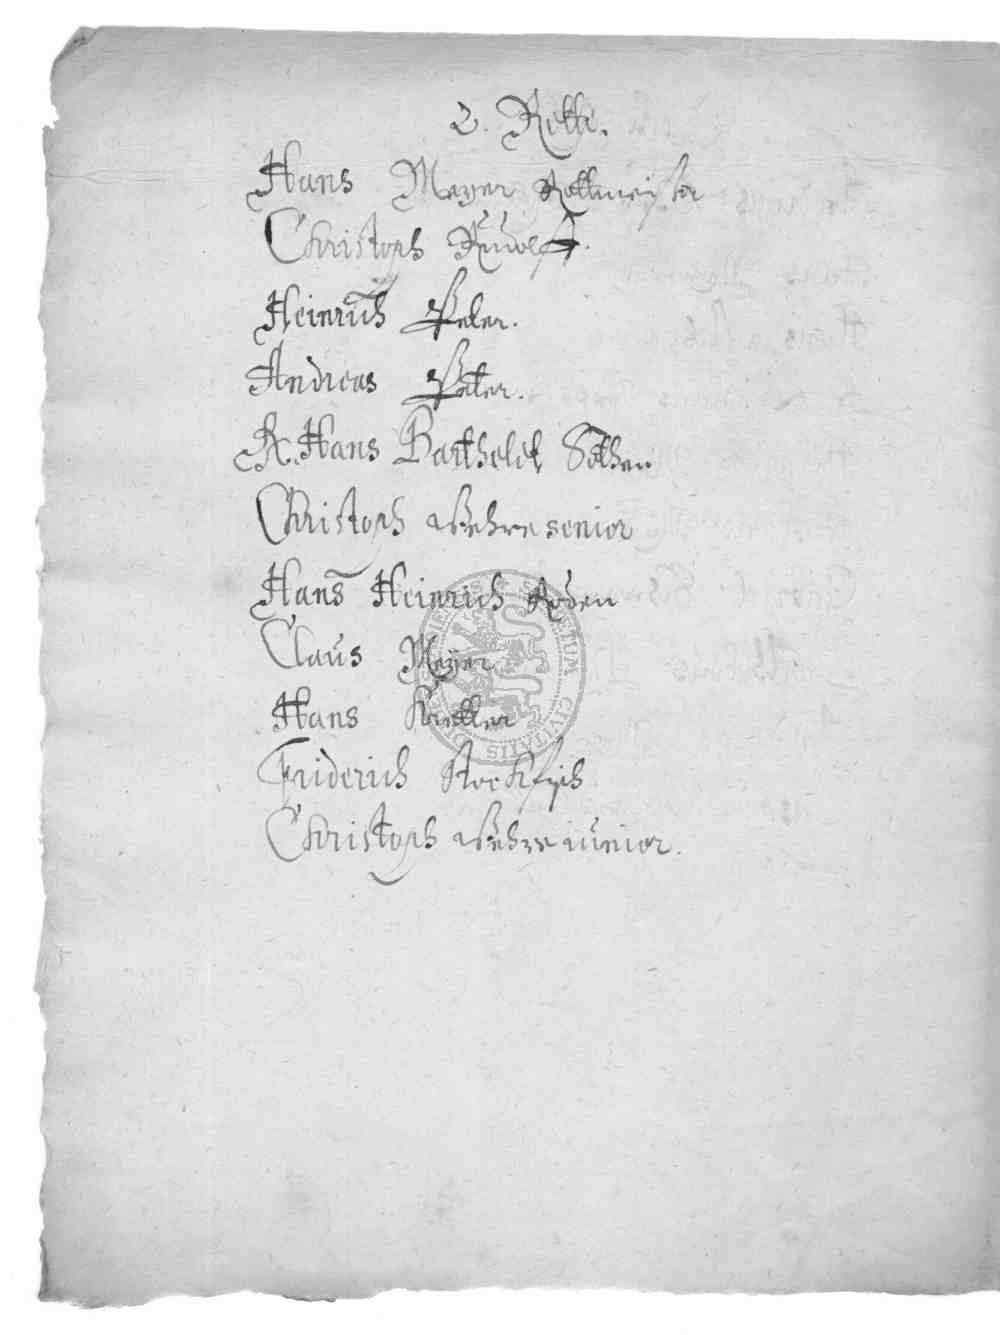 2. Rotte.
Hans Meyer Rottmeister
Christoph Rudolff.
Heinrich Peter.
Andreas Peter.
R. Hans Bartheldt Söthen
Christoph Wehre senior
Hans Heinrich Roden
Claus Meyer
Hans Kretter
Friderich Stockfisch
Christoph Wehre iunior.